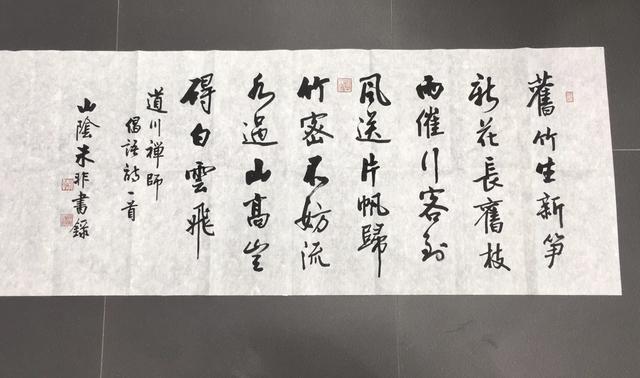 舊竹生新笋
新花長舊枝
雨催行客到
風送片帆歸
竹密不妨流
水過山高豈
碍白雲飛
道川禅師
偈語詩一首
山陰未非書錄